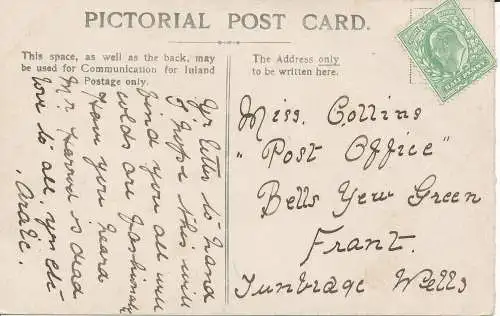 PICTORIAL POST CARD.
This space, as well as the back, may
be used for Communication for Inland
Postage only.
The Address only
to be written here.
Yr letter to hand
I hope this will
find you all well
colds are fashionable
Have you heard
Mr Harrod is dead
love to all. yrs etc
Miss. Collins
"Post Office"
Bells Yew Green
Frant.
Tunbridge Wells